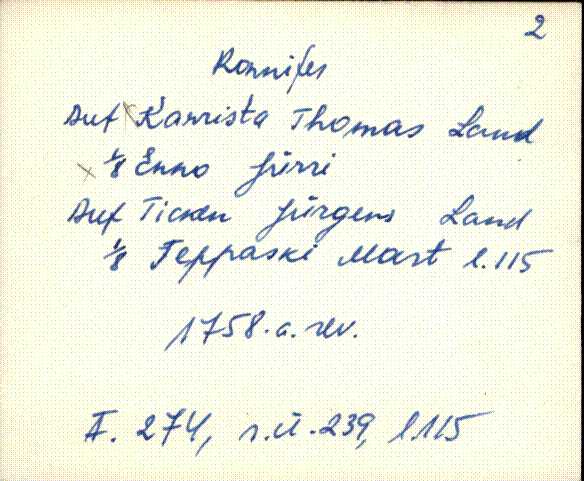 2
Ronnifer
Auf Karrista Thomas Land
1/8 Enno Jürri
Auf Ticken Jürgens Land
1/8 Teppaski Mart l.115
1758.a. rev.
F. 274, n.ü. 239, l.115